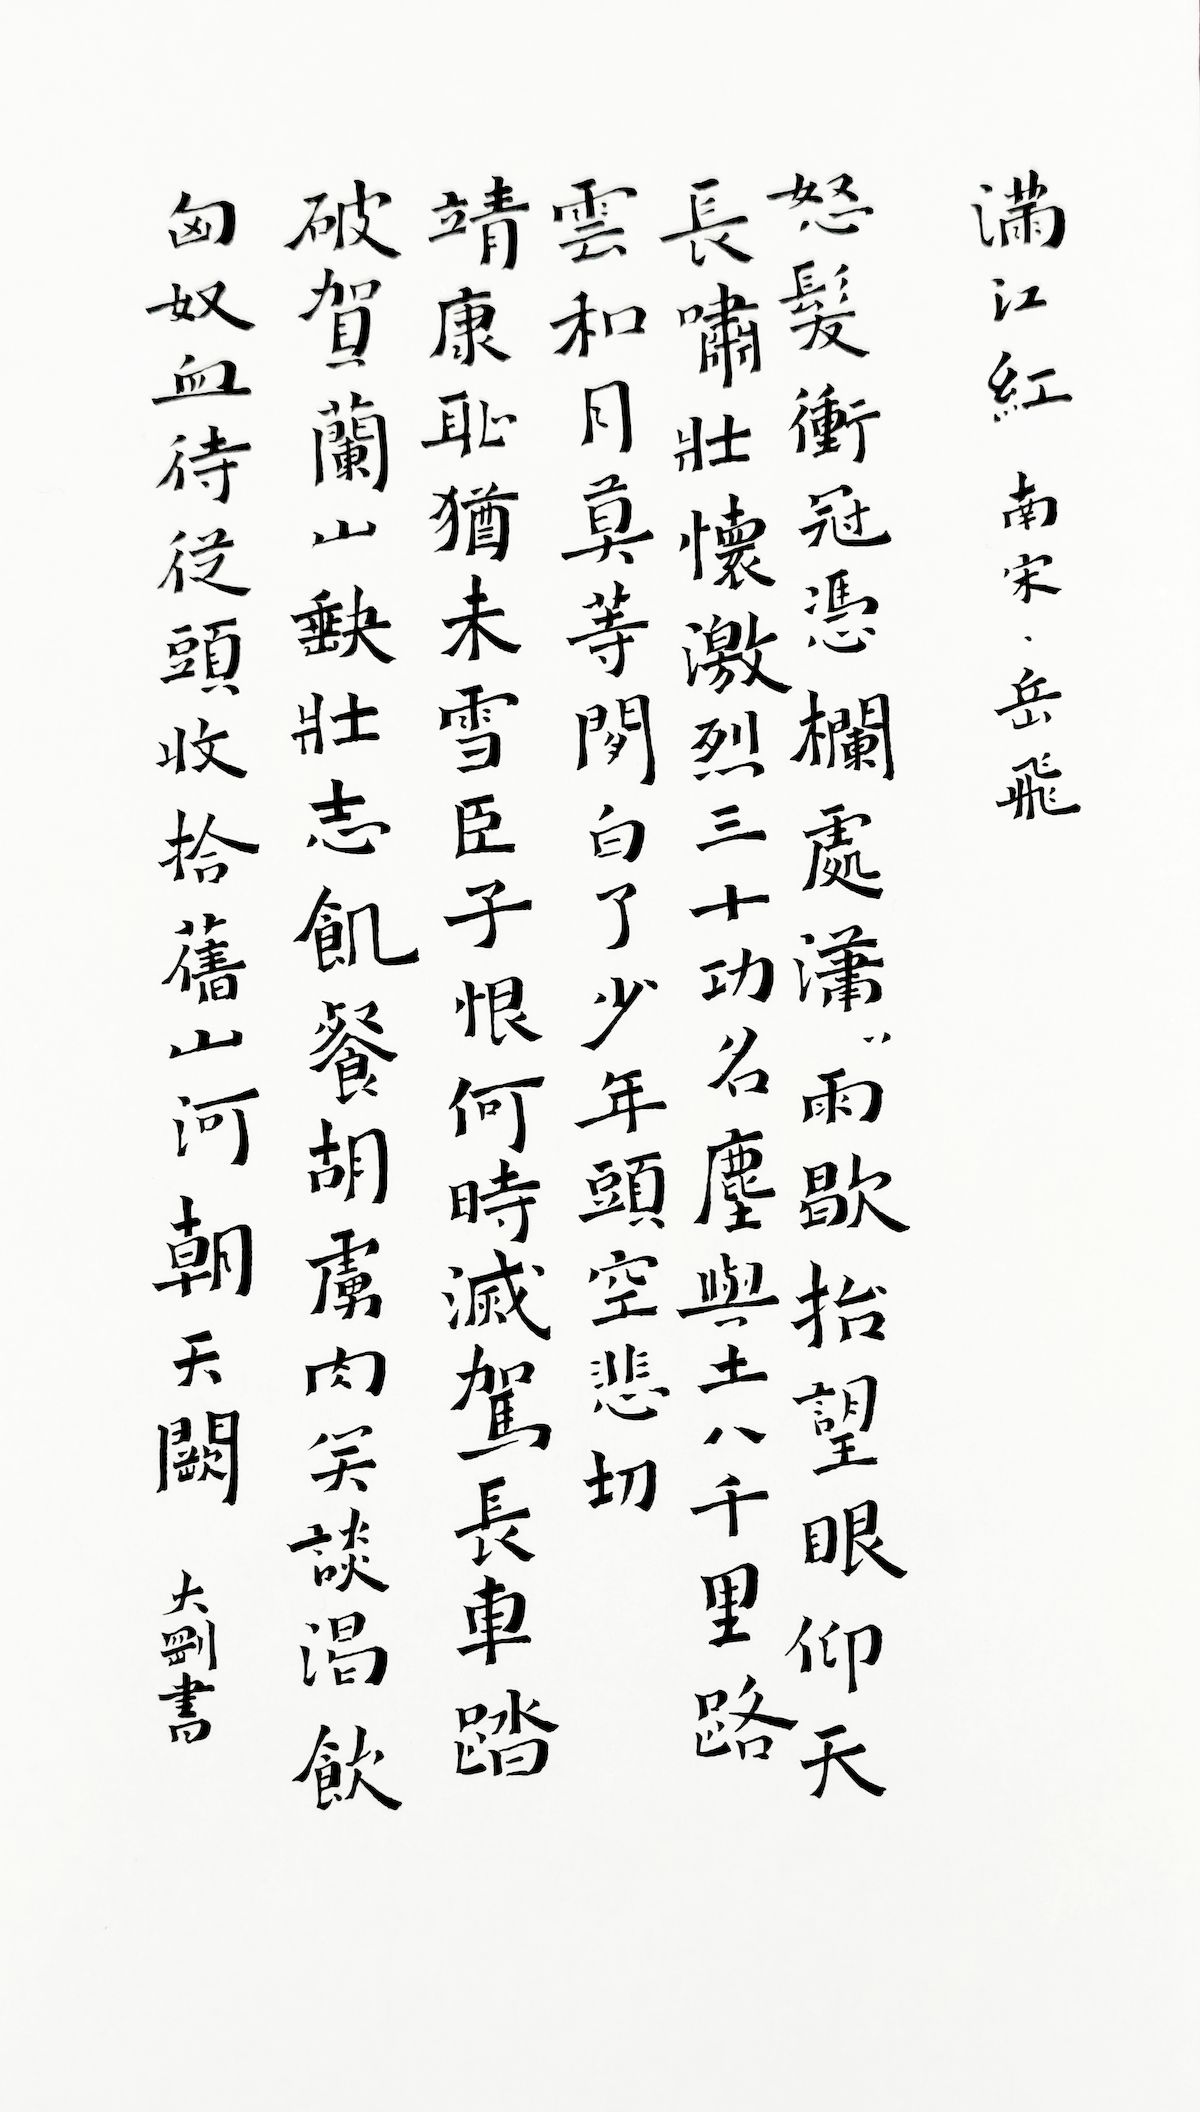 滿江紅 南宋·岳飛
怒髮衝冠憑欄處瀟〻雨歇抬望眼仰天
長嘯壯懷激烈三十功名塵與土八千里路
雲和月莫等閑白了少年頭空悲切
靖康恥猶未雪臣子恨何時滅駕長車踏
破賀蘭山缺壯志飢餐胡虜肉笑談渴飲
匈奴血待從頭收拾舊山河朝天闕
大剛書